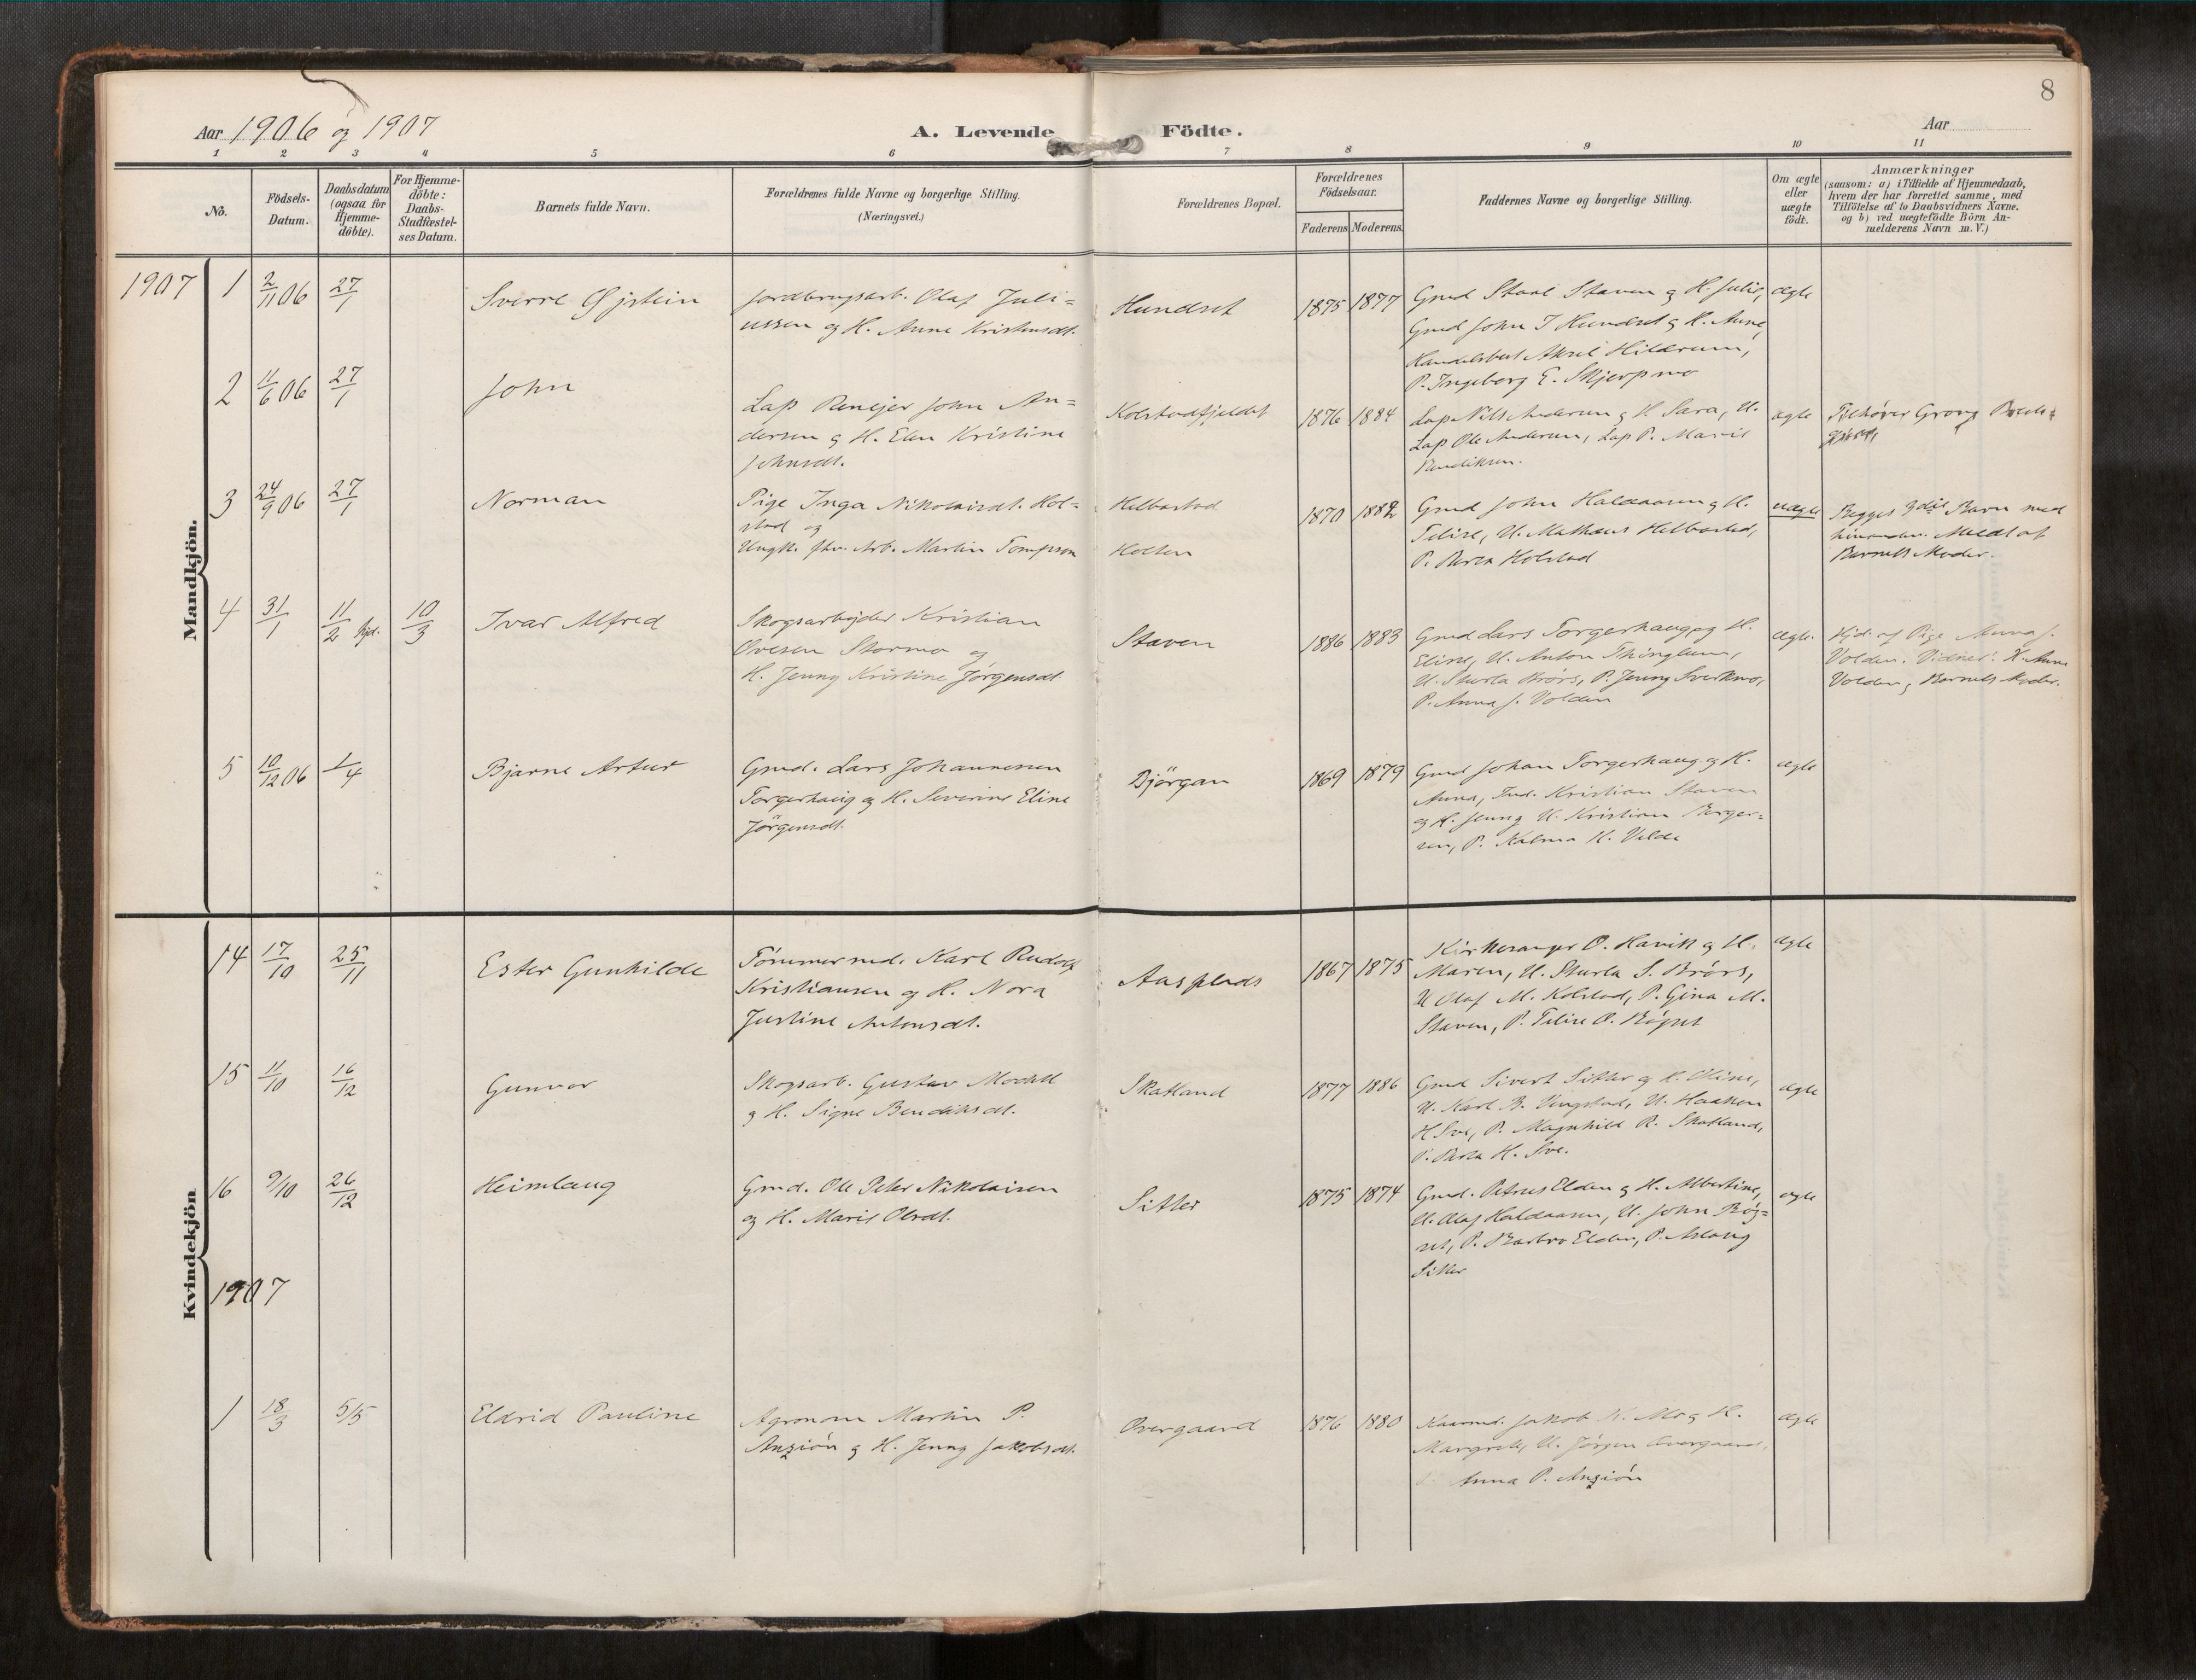 8
Aar 1906 og 1907
A. Levende Födte.
Aar
1 2 3 4 5 6 7 8 9 10 11
No.
Födsels-
Datum.
Daabsdatum
(ogsaa for
Hjemme-
döbte).
For Hjemme-
döbte:
Daabs-
Stadfæstel-
ses Datum.
Barnets fulde Navn.
Forældrenes fulde Navne og borgerlige Stilling.
(Næringsvei.)
Forældrenes Bopæl.
Forældrenes
Födselsaar.
Faderens. Moderens.
Faddernes Navne og borgerlige Stilling.
Om ægte
eller
uægte
födt.
Anmærkninger
(saasom: a) i Tilfælde af Hjemmedaab,
hvem der har forrettet samme, med
Tilföielse af to Daabsvidners Navne,
og b) ved uægtefödte Börn An-
melderens Navn m. V.)
Mandkjön.
1907
1 2/11 06 27/1 Sverre Øistein
Jordbrugsarb. Olaf Juli=
ussen og H. Anne Kristensdt.
Hundset 1875 1877
Gmd Staal Staven og H. Julie,
Gmd John J Hundset og H. Anne,
Handelsbest Aksel Hildrum,
P. Ingeborg E. Skjerpmo
ægte
2 11/6 06 27/1 John
Lap Renejer John An=
dersen og H. Elen Kristine
Johnsdt.
Kolstadfjeldet 1876 1884
Lap Nils Andersen og H. Sara, U.
Lap Ole Andersen, Lap P. Marie
Bendiksen.
ægte
Tilhører Grong
3 24/9 06 27/1 Norman
Pige Inga Nikolaisdt. Hol=
stad og
Ungk. fhv. Arb. Martin Tompson
Helbostad
Holten
1870 1882
Gmd John Haldaasen og H.
Feline, U. Mathæus Helbostad,
P. Holstad
uægte
Begges 2det Barn med
hinanden. Meldt af
Barnets Moder.
4 31/1 11/2 hjd. 10/3 Ivar Alfred
Skogsarbejder Kristian
Ovesen Stormo og
H. Jenny Kristine Jørgensdt.
Staven 1886 1883
Gmd Lars Torgerhaug og H.
Eline, U. Anton Thinglum,
U. Sturla Brørs, P. Jenny Sverkmo,
P. Anna J. Volden
ægte.
Hjd. af Pige Anna J.
Volden. Vidner: H. Anne
Volden og Barnets Moder.
5 10/12 06 1/4 Bjarne Artur
Gmd. Lars Johannesen
Torgerhaug og H. Severine Eline
Jörgensdt.
Björgan 1869 1879
Gmd Johan Torgerhaug og H.
Anna, Ind. Kristian Staven
og H. Jenny U. Kristian Berger=
sen, P. Kalma K. Velde
ægte
Kvindekjön
14 17/10 25/11 Ester Gunhilde
Tömmermd. Karl Rudolf
Kristiansen og H. Nora
Justine Antonsdt.
Aasplads 1867 1875
Kirkesanger O. Havik og H.
Maren, U. Sturla S. Brørs,
U Olaf M. Kolstad, P. Gina M.
Staven, P. Feline O. Bögset
ægte
15 11/10 16/12 Gunvor
Skogsarb. Gustav Modell
og H. Signe Bendiksdt.
Skatland 1877 1886
Gmd Sivert Sitter og H. Oline,
U. Karl B. Vengstad, U. Haakon
H Sve, P. Magnhild R. Skatland,
P. H. Sve.
ægte
16 9/10 26/12 Heimlaug
Gmd. Ole Peter Nikolaisen
og H. Marie Olesdt.
Sitter 1875 1874
Gmd. Petrus Elden og H. Albertine,
U. Olaf Haldaasen, U. John Bög=
set, P. Barbro Elden, P. Aslaug
Sitter
ægte
1907
1 18/3 5/5 Eldrid Pauline
Agronom Martin P.
Anziøn og H. Jenny Jakobsdt.
Overgaard 1876 1880
Kaarmd. Jakob K. Mo og H.
Margrete, U. Jørgen Overgaard,
Anna P. Anziøn
ægte